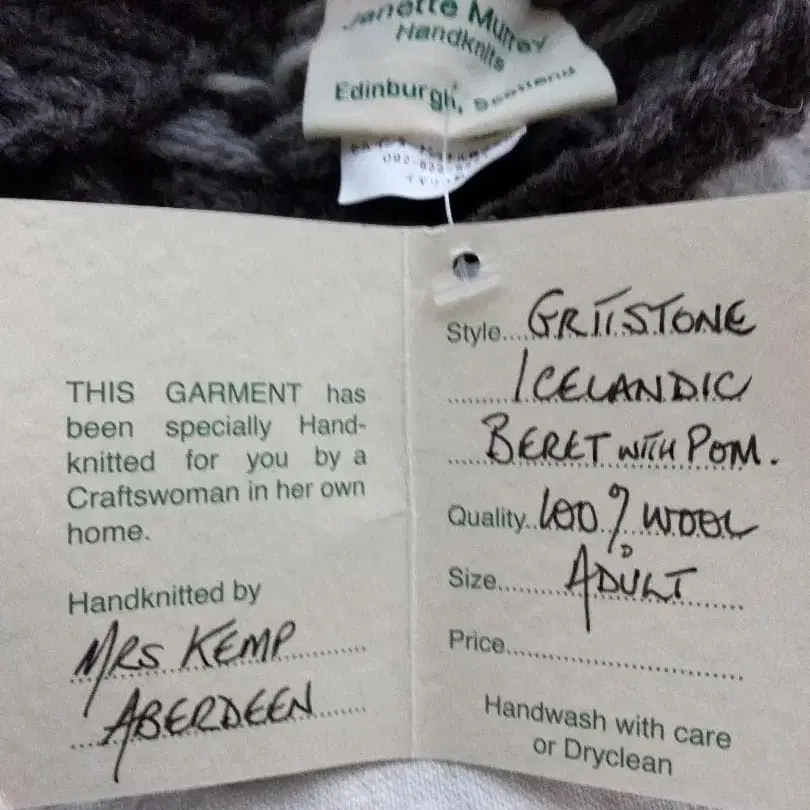 Janette Murray
Handknits
Edinburgh, Scotland
THIS GARMENT has
been specially Hand-
knitted for you by a
Craftswoman in her own
home.
Handknitted by
MRS KEMP
ABERDEEN
Style....GRITSTONE
ICELANDIC
BERET WITH POM.
Quality..100% WOOL
Size....ADULT
Price....
Handwash with care
or Dryclean